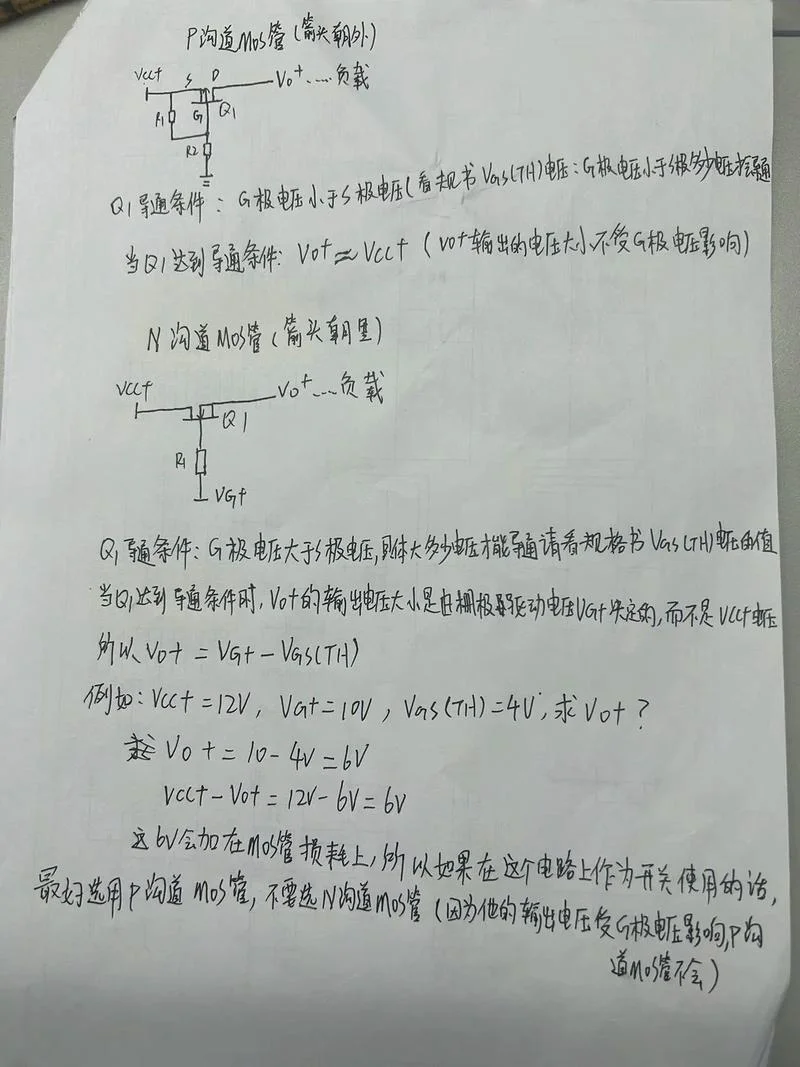 P沟道MOS管(箭头朝外)
VCC+ S D VO+ ......负载
R1 G Q1
R2
Q1导通条件: G极电压小于S极电压(看规书VGS(TH)电压:G极电压小于S极多少电压才会导通
当Q1达到导通条件: VO+≈VCC+ (VO+输出的电压大小不受G极电压影响)
N沟道MOS管(箭头朝里)
VCC+ VO+......负载
Q1
R1
VG+
Q1导通条件: G极电压大于S极电压,具体大多少电压才能导通请看规格书VGS(TH)电压的值
当Q1达到导通条件时, VO+的输出电压大小是由栅极驱动电压VG+决定的,而不是VCC+电压
所以VO+ = VG+ - VGS(TH)
例如: VCC+=12V, VG+=10V, VGS(TH)=4V,求VO+?
VO+ = 10-4V=6V
VCC+-VO+=12V-6V=6V
这6V会加在MOS管损耗上,所以如果在这个电路上作为开关使用的话,
最好选用P沟道MOS管,不要选N沟道MOS管(因为他的输出电压受G极电压影响,P沟
道MOS管不会)